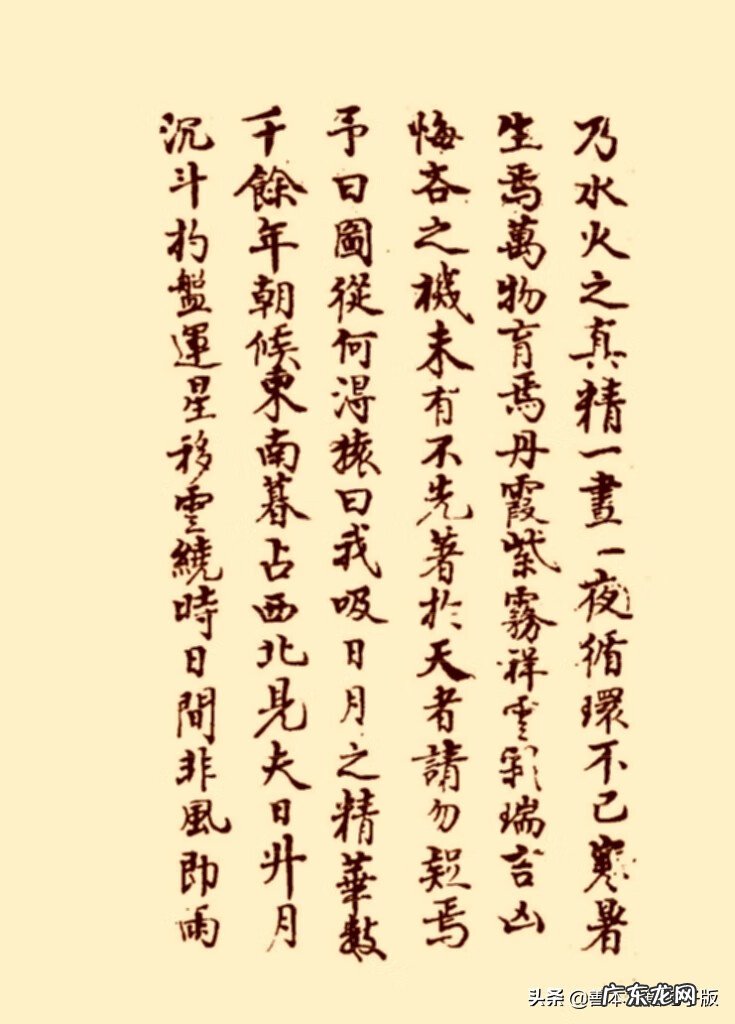 乃水火之真精一晝一夜循環不已寒暑
生焉萬物育焉丹霞紫霧祥雲彩瑞吉凶
悔吝之機未有不先著於天者請勿疑焉
予曰圖從何得猿曰我吸日月之精華數
千餘年朝候東南暮占西北見夫日升月
沉斗杓盤運星移雲繞時日間非風即雨
头条 @善本 版
广东龙网